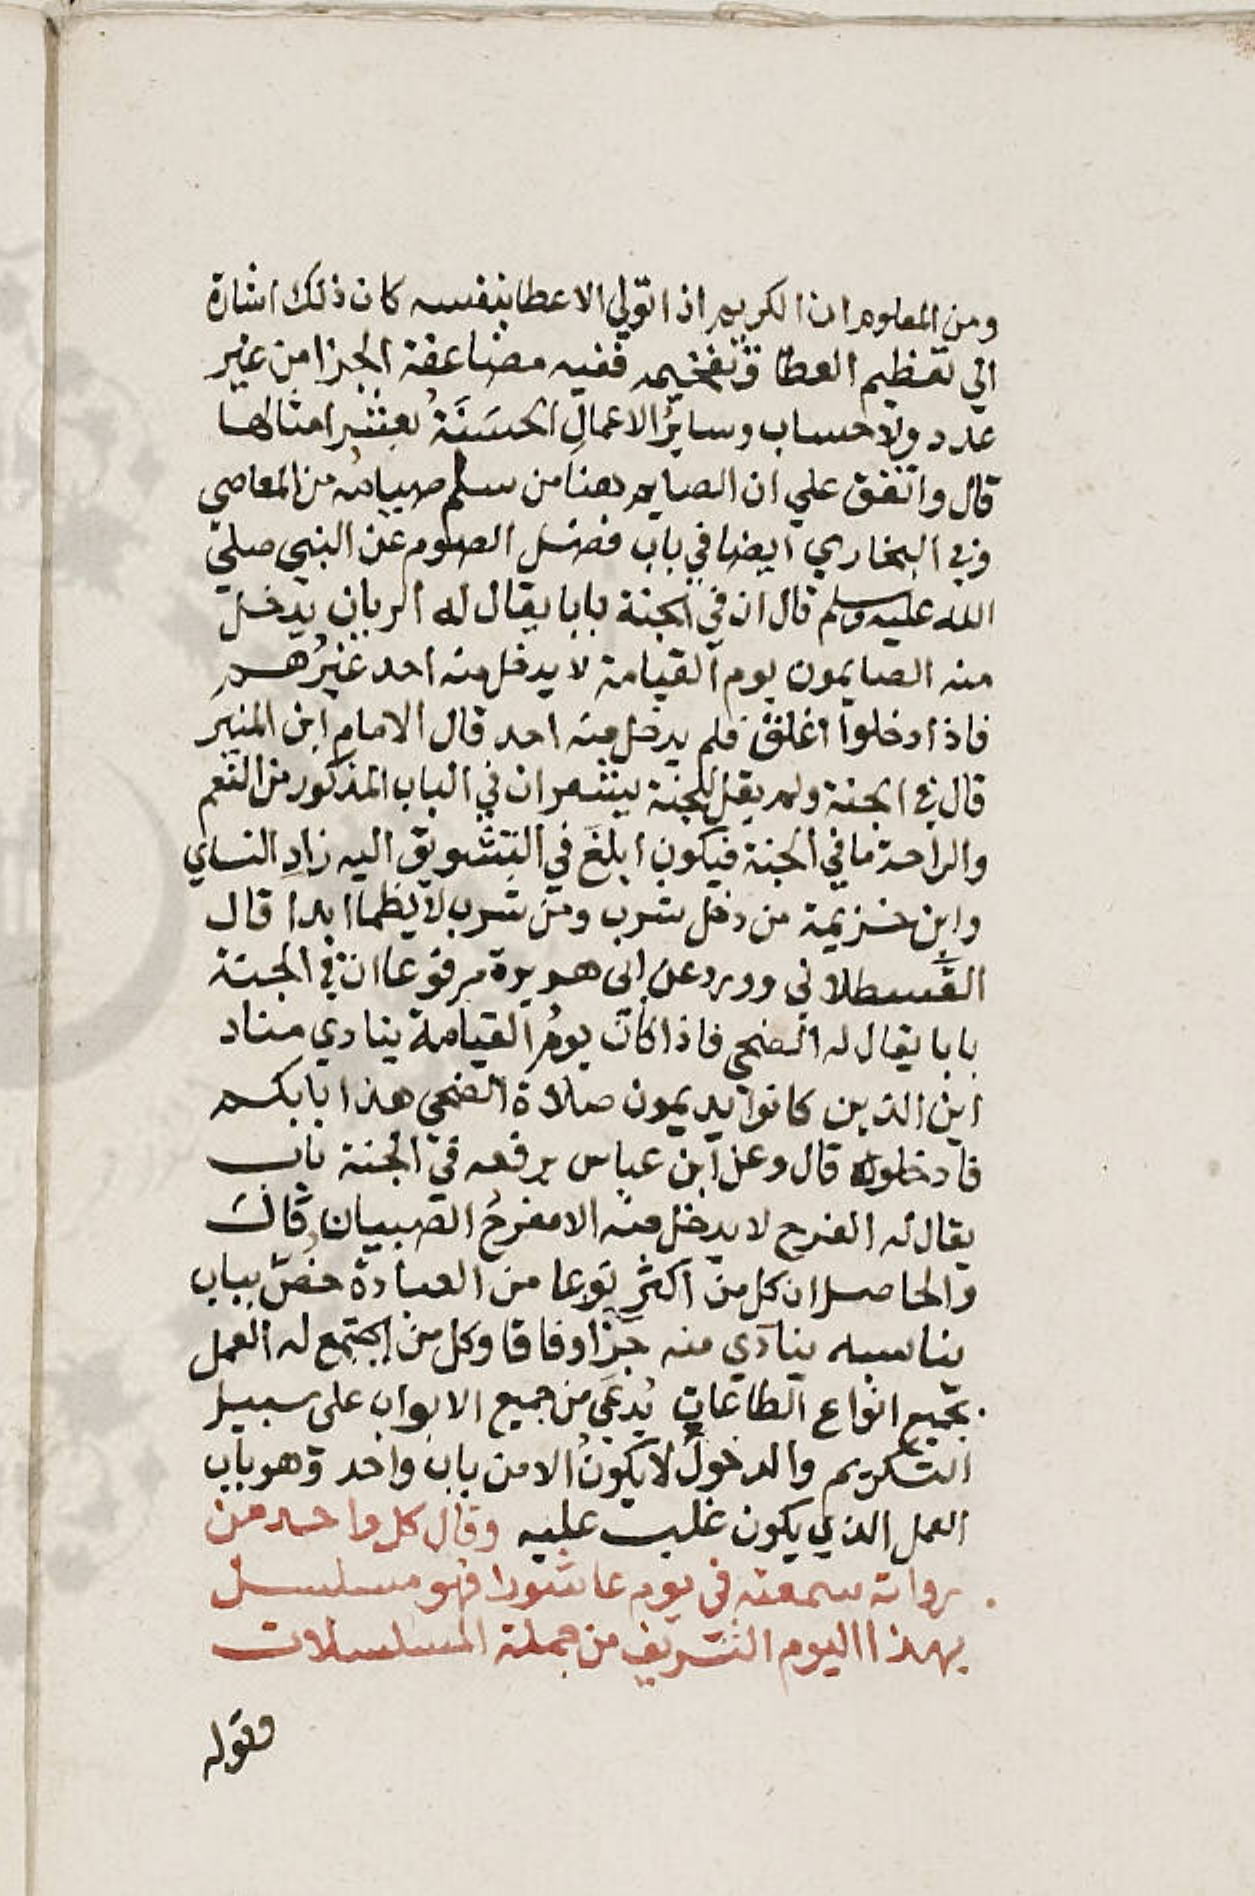 ومن المعلوم ان الكريم اذا تولي الاعطا بنفسه كان ذلك اشارة
الي تعظيم العطا وتفخيمه ففيه مضاعفة الجزا من غير
عدد ولا حساب وسايرُ الاعمالِ الحسَنَةُ بعشر امثالها
قال واتفق علي ان الصايم هنا من سلم صيامه من المعاصي
وفي البخاري ايضا في باب فضل الصوم عن النبي صلي
الله عليه وسلم قال ان في الجنة بابا يقال له الريان يدخل
منه الصايمون يوم القيامة لا يدخل منه احد غيرُهم
فاذا دخلوا اغلق فلم يدخل منه احد قال الامام ابن المنير
قال في الجنة ولم يقل للجنة ليشعر ان في الباب المذكور من النعم
والراحة ما في الجنة فيكون ابلغَ في التشويق اليه زاد النساي
وابن خزيمة من دخل شرب ومن شرب لا يظما ابدا قال
القَسطلاني وورد عن ابى هريرة مرفوعا ان في الجنة
بابا يقال له الضحى فاذا كان يومُ القيامة ينادي مناد
اين الذين كانوا يديمون صلاة الضحى هذا بابكم
فادخلوه قال وعن ابن عباس يرفعه في الجنة باب
يقال له الفرح لا يدخل منه الا مفرحُ الصبيان قال
والحاصل ان كل من اكثر نوعا من العبادة خصَّ بباب
يناسبه ينادي منه جَزَا وفاقا وكل من اجتمع له العمل
بجميع انواع الطاعات يُدعَي من جميع الابواب على سبيل
التكريم والدخولُ لا يكونُ الا من باب واحد وهو باب
العمل الذي يكون غلب عليه وقال كل واحد من
رواته سمعته في يوم عاشورا فهو مسلسل
بهذا اليوم الشريف من جملة المسلسلات
وقوله